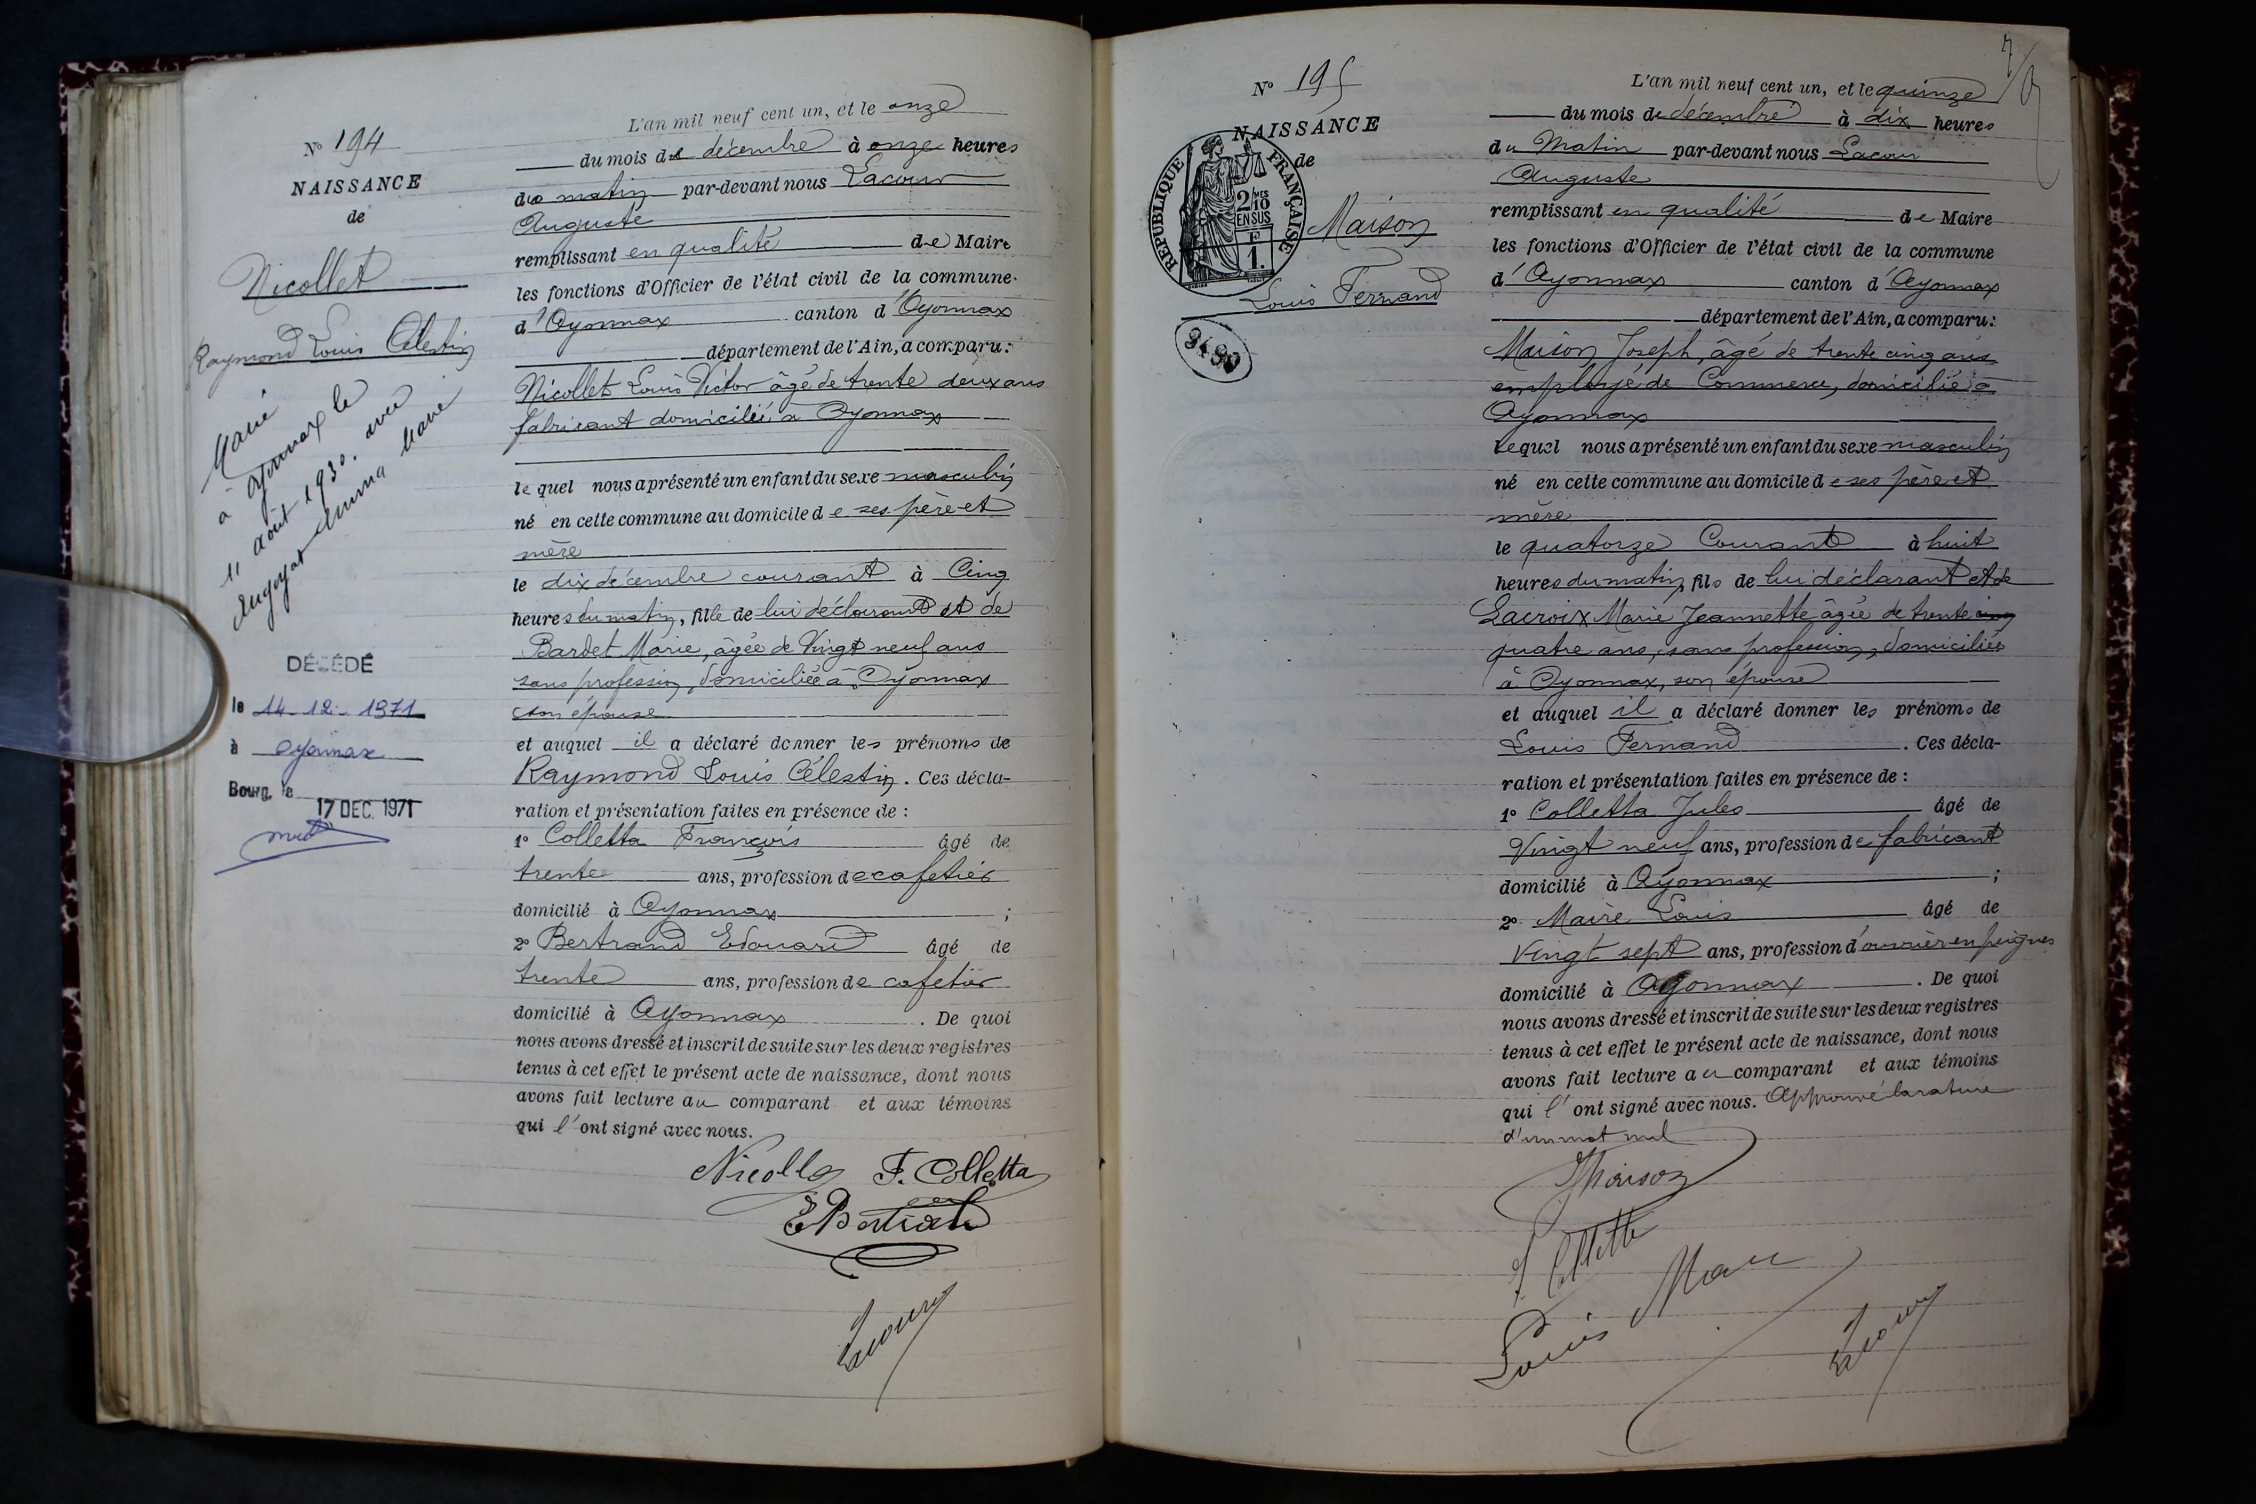 N° 194
NAISSANCE
de
Nicollet
Raymond Louis Célestin
Marié
à Oyonnax le
11 août 1930. avec
Emma Marie
DÉCÉDÉ
le 14-12-1971
à Oyonnax
Bourg, le
17 DEC. 1971
L'an mil neuf cent un, et le onze
du mois de décembre à onze heures
du matin par-devant nous Lacour
Auguste
remplissant en qualité de Maire
les fonctions d'Officier de l'état civil de la commune
d'Oyonnax canton d'Oyonnax
département de l'Ain, a comparu:
Nicollet Louis Victor âgé de trente deux ans
fabricant domicilié à Oyonnax
lequel nous a présenté un enfant du sexe masculin
né en cette commune au domicile de ses père et
mère
le dix décembre courant à Cinq
heures du matin, fils de lui déclarant et de
Bardet Marie, âgée de Vingt neuf ans
sans profession, domiciliée à Oyonnax
son épouse
et auquel il a déclaré donner les prénoms de
Raymond Louis Célestin. Ces décla-
ration et présentation faites en présence de :
1° Colletta François âgé de
trente ans, profession de cafetier
domicilié à Oyonnax ;
2° Bertrand Edouard âgé de
trente ans, profession de cafetier
domicilié à Oyonnax. De quoi
nous avons dressé et inscrit de suite sur les deux registres
tenus à cet effet le présent acte de naissance, dont nous
avons fait lecture au comparant et aux témoins
qui l'ont signé avec nous.
Nicollet F. Colletta
E Bertrand
Lacour
7
N° 195
NAISSANCE
de
RÉPUBLIQUE FRANÇAISE
2/10
EN SUS
1.
Maison
Louis Fernand
9480
L'an mil neuf cent un, et le quinze
du mois de décembre à dix heures
du Matin par-devant nous Lacour
Auguste
remplissant en qualité de Maire
les fonctions d'Officier de l'état civil de la commune
d'Oyonnax canton d'Oyonnax
département de l'Ain, a comparu:
Maison Joseph, âgé de trente cinq ans
employé de Commerce, domicilié à
Oyonnax
lequel nous a présenté un enfant du sexe masculin
né en cette commune au domicile de ses père et
mère
le quatorze Courant à huit
heures du matin, fils de lui déclarant et de
Lacroix Marie Jeannette âgée de trente cinq
quatre ans, sans profession, domiciliée
à Oyonnax, son épouse
et auquel il a déclaré donner les prénoms de
Louis Fernand. Ces décla-
ration et présentation faites en présence de :
1° Colletta Jules âgé de
Vingt neuf ans, profession de fabricant
domicilié à Oyonnax ;
2° Maire Louis âgé de
Vingt sept ans, profession d'ouvrier en peignes
domicilié à Oyonnax. De quoi
nous avons dressé et inscrit de suite sur les deux registres
tenus à cet effet le présent acte de naissance, dont nous
avons fait lecture au comparant et aux témoins
qui l'ont signé avec nous. Approuvé la rature
d'un mot nul
J Maison
J. Colletta
Louis Maire
Lacour